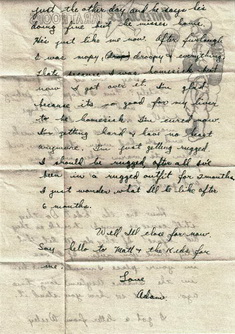 just the other day and he says he's
doing fine but he misses home.
He's just like me now. After furlough
I was mopy droopy & everything
that's because I was homesick but
now I got over it. I'm glad
because its so good for my liver
to be homesick. I'm cured now.
I'm getting hard & have no heart
anymore. I'm just getting rugged
I should be rugged after all I've
been in a rugged outfit for 2 months
I just wonder what I'll be like after
6 months.
Well I'll close for now.
Say hello to Matt & the Kids for
me.
Love
Adam